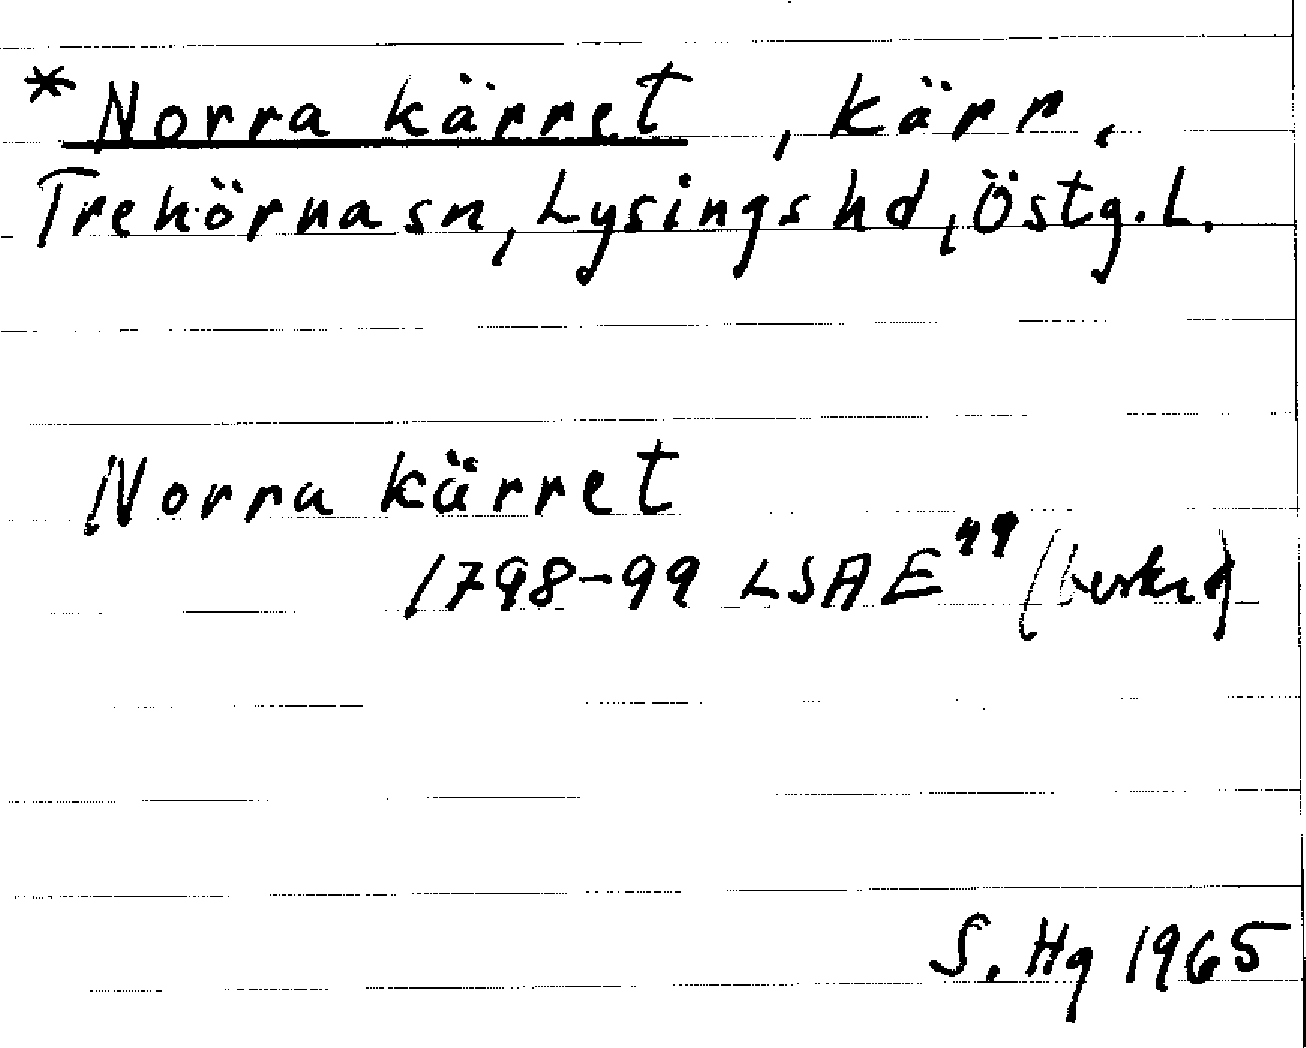 *Norra kärret, kärr.
Trehörna sn, Lysings hd, Östg. L.
Norra kärret
1798-99 LSA E
S. Hg 1965